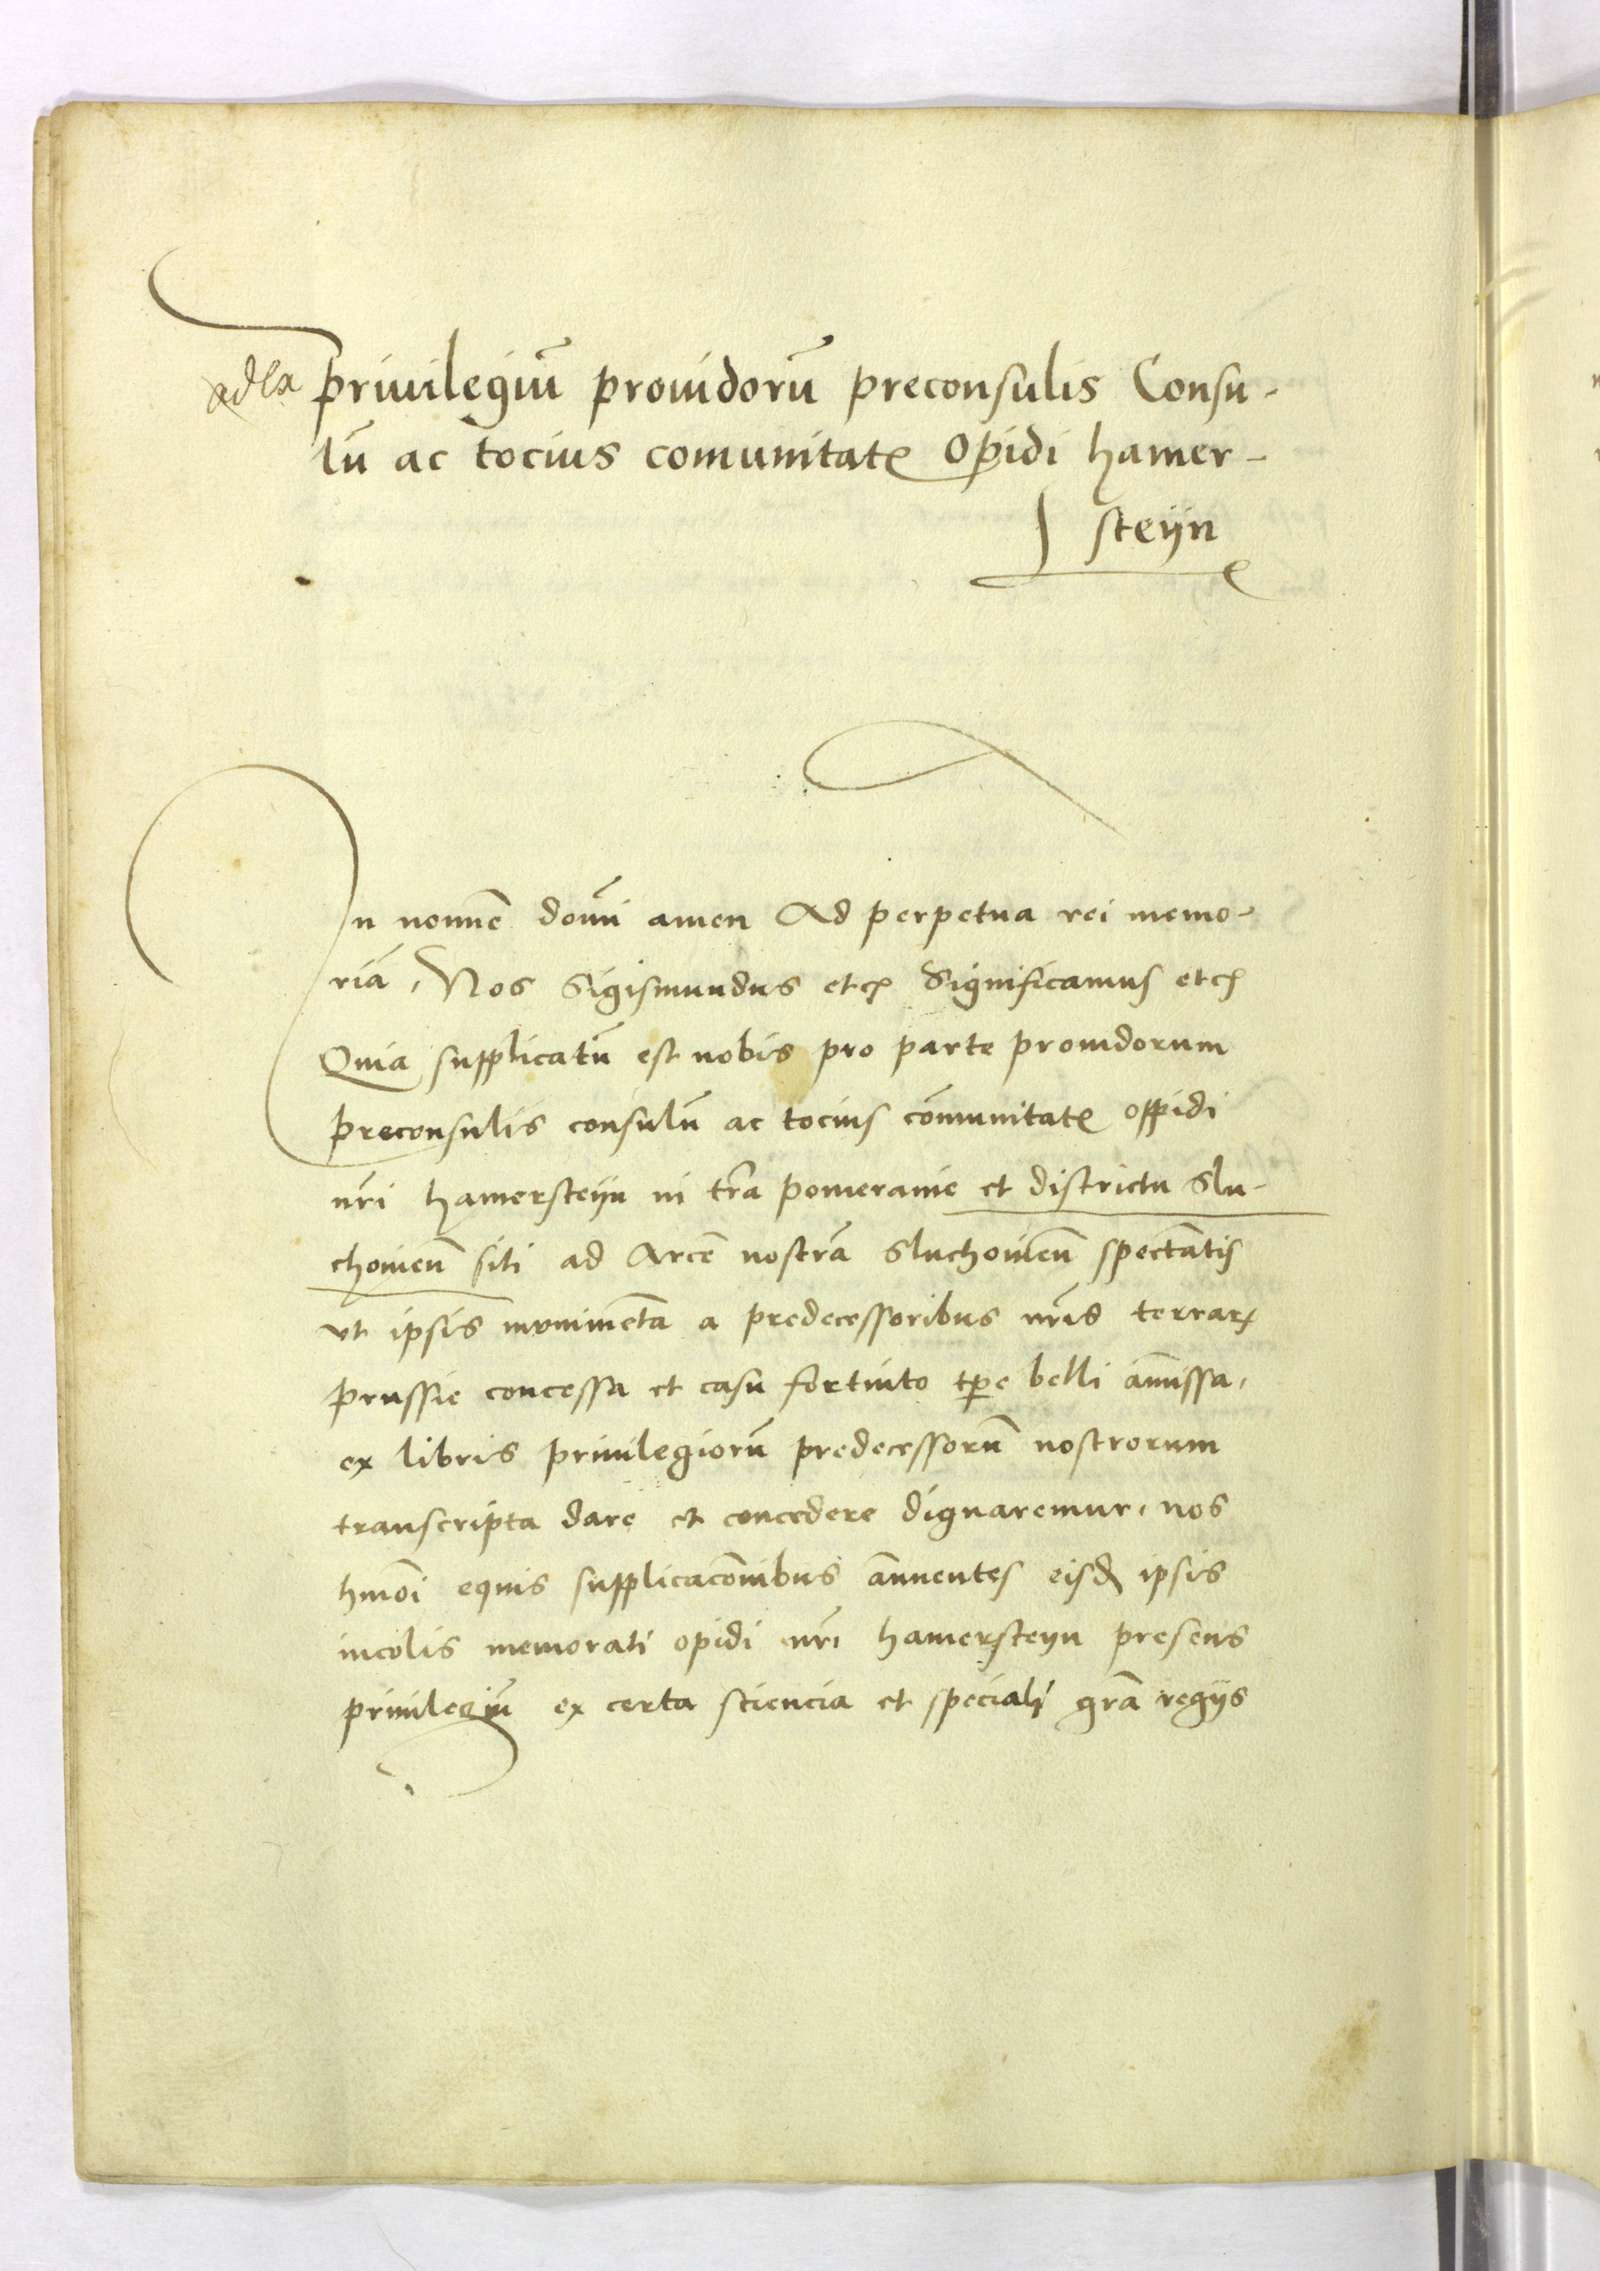 privilegiū prouidorū preconsulis Consu-
lū ac tocius comunitatꝭ opidi hamer-
steijn
In nomīe domīi amen Ad perpetua rei memo-
riā, Nos Sigismundus etcꝭ Significamus etcꝭ
Quia supplicatū est nobis pro parte prouidorum
preconsulis consulū ac tocius cōmunitatꝭ oppidi
nr̄i hamersteijn in tr̄a pomeranie et districtu Slu-
chouieñ siti ad Arcē nostrā Sluchouieñ spectātis
vt ipsis munimēta a predecessoribus nr̄is terrarꝝ
prussie concessa et casu fortuito tp̄e belli am̄issa,
ex libris priuilegiorū predecessorū nostrorum
transcripta dare et concedere dignaremur, nos
hmōi equis supplicac̄onibus an̄uentes eisdꝫ ipsis
incolis memorati opidi nr̄i hamersteyn presens
priuilegiū ex certa sciencia et speciali gr̄a regijs